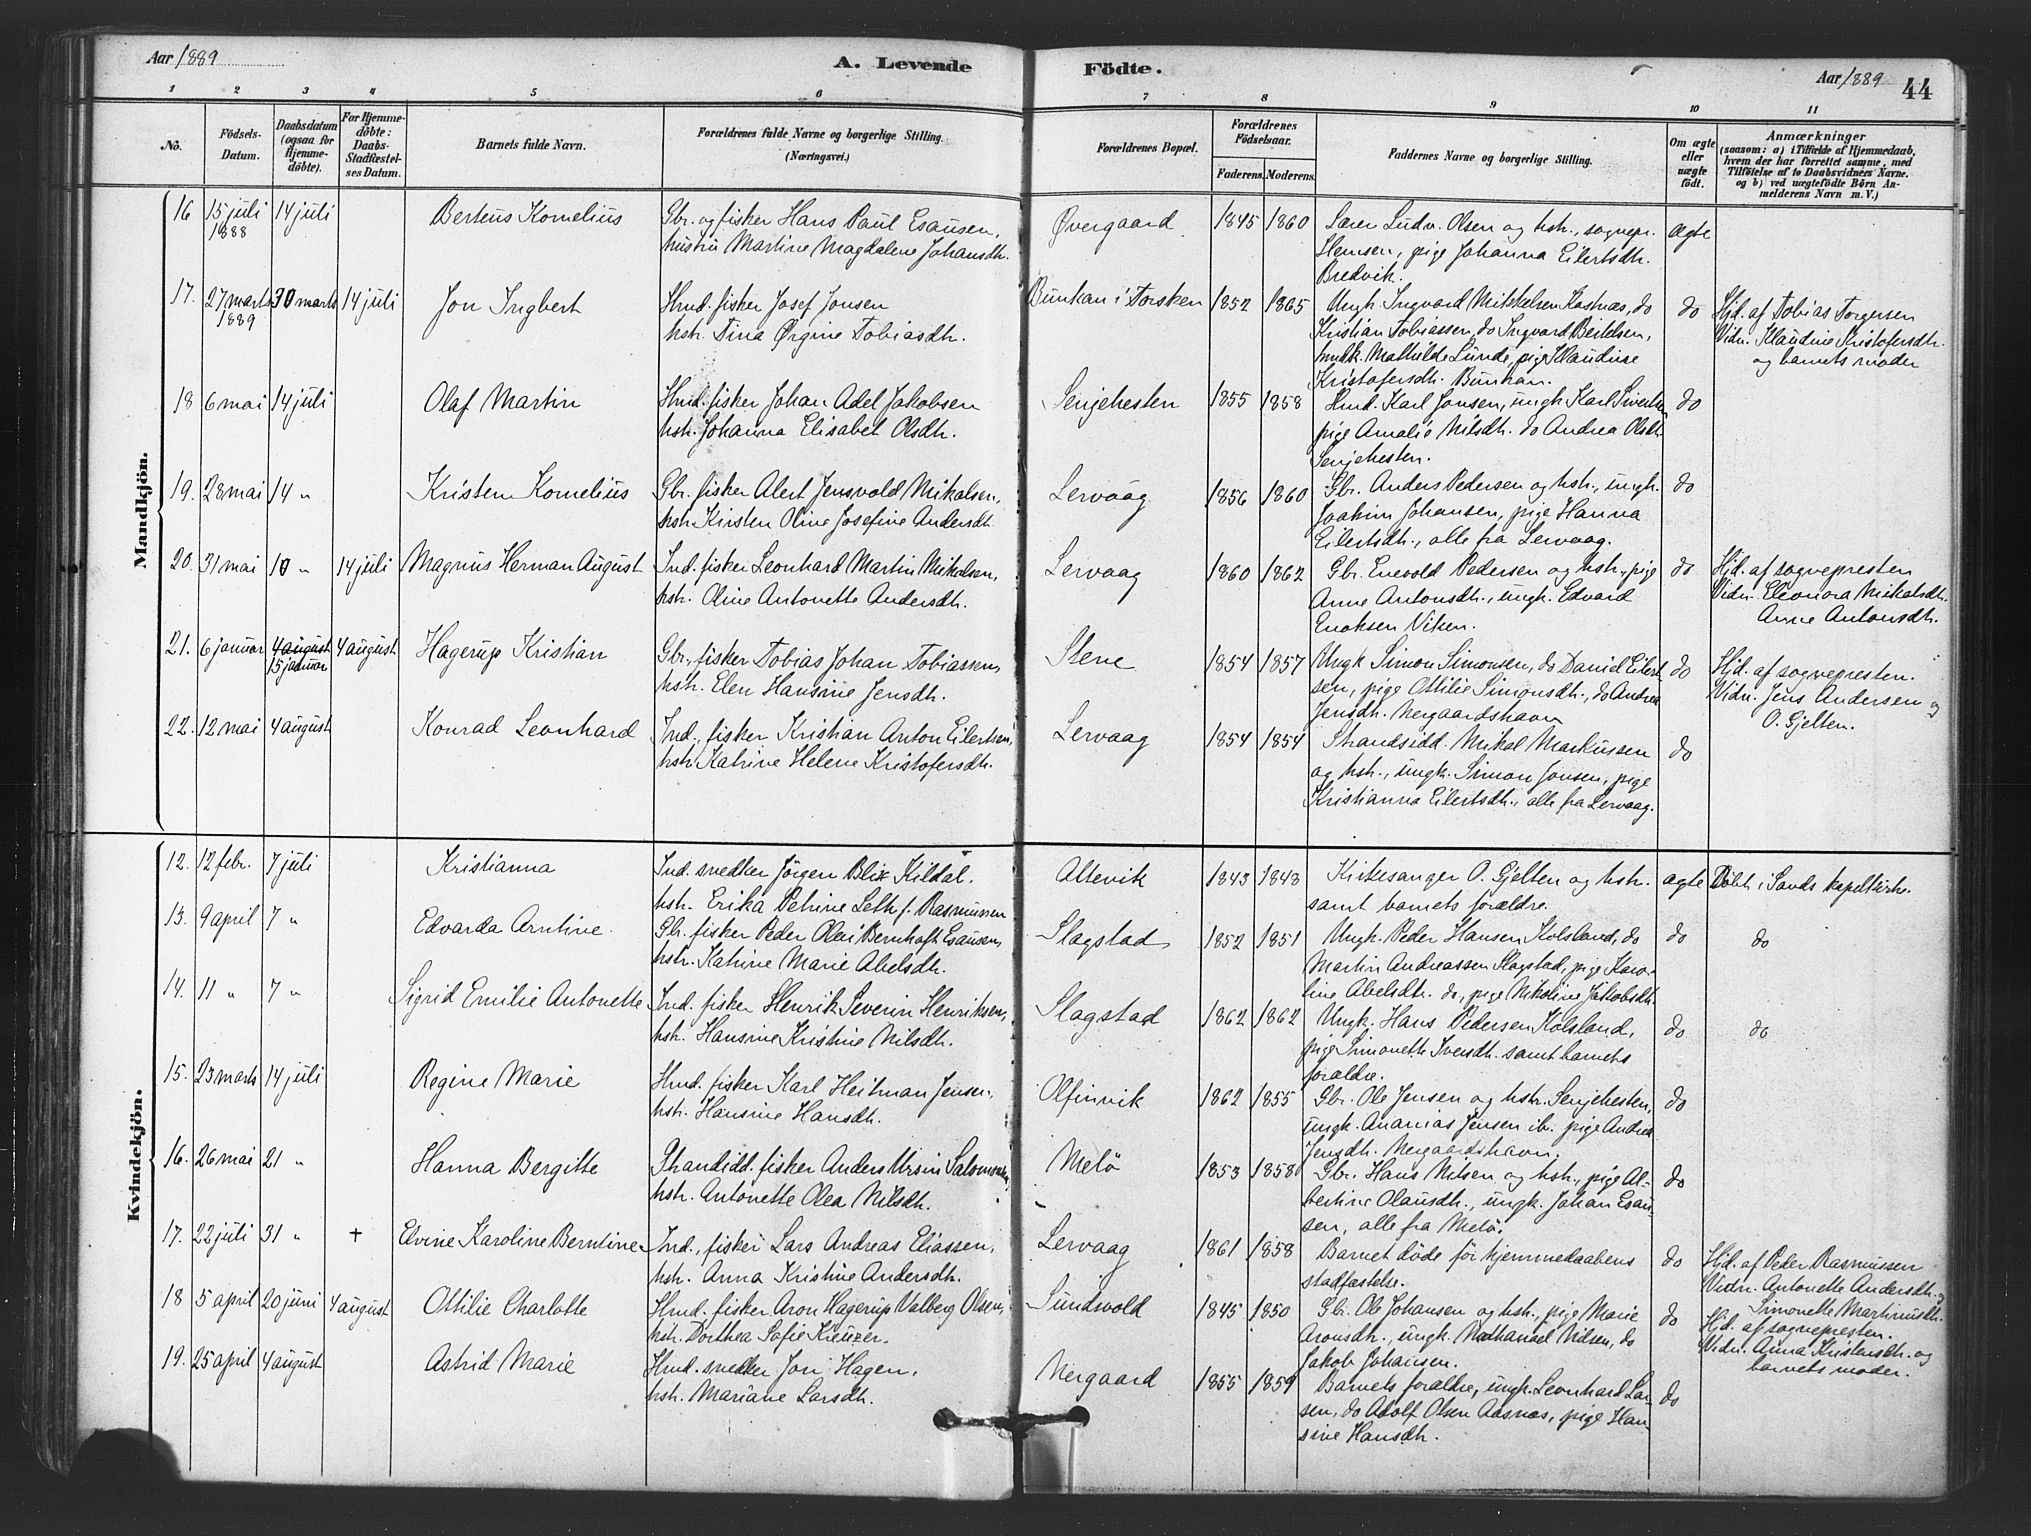 Aar 1889 A. Levende Födte. Aar 1889 44
1 2 3 4 5 6 7 8 9 10 11
No. Födsels-Datum. Daabsdatum (ogsaa for Hjemme-döbte). For Hjemme-döbte: Daabs-Stadfæstel-ses Datum. Barnets fulde Navn. Forældrenes fulde Navne og borgerlige Stilling. (Næringsvei.) Forældrenes Bopæl. Forældrenes Födselsaar. Faderens. Moderens. Faddernes Navne og borgerlige Stilling. Om ægte eller uægte födt. Anmærkninger (saasom: a) i Tilfælde af Hjemmedaab, hvem der har forrettet samme, med Tilföielse af to Daabsvidners Navne. og b) ved uægtefödte Börn An-melderens Navn m. V.)
Mandkjön.
16 15 juli 1888 14 juli Berteus Kornelius Gbr. og fisker Hans Paul Esausen, hustru Martine Magdalene Johansdtr. Øvergaard 1845 1860 Søren Ludv. Olsen og hstr., sognepr. Hemsen, pige Johanna Eilertsdtr. Bredvik. ægte
17. 27 marts 1889 30 marts 14 juli Jon Ingbert Hmd. fisker Josef Jonsen hstr. Tina Ørgine Tobiasdtr. Bunkan i Torsken 1852 1865 Ungk. Ingvard Mikkelsen Kasnæs, do Kristian Tobiassen, do Ingvard Bertelsen, hmdk. Mathilde Lunde, pige Klaudine Kristofersdtr. Bunkan. do Hjd. af Tobias Torgersen Vidn. Klaudine Kristofersdtr. og barnets moder
18 6 mai 14 juli Olaf Martin Hmd. fisker Johan Adel Jakobsen hstr. Johanna Elisabet Olsdtr. Senjehesten 1855 1858 Hmd. Karl Jonsen, ungk. Karl Sivertsen pige Amalie Nilsdtr. do Andrea Olsdtr. Senjehesten. do
19. 28 mai 14 " Kristen Kornelius Gbr. fisker Alert Jensvold Mikalsen, hstr. Kirsten Oline Josefine Andersdtr. Lervaag 1856 1860 Gbr. Anders Pedersen og hstr., ungk. Joakim Johansen, pige Hanna Eilertsdtr., alle fra Lervaag. do
20. 31 mai 10 " 14 juli Magnus Herman August Ind. fisker Leonhard Martin Mikalsen, hstr. Oline Antonette Andersdtr. Lervaag 1860 1862 Gbr. Enevold Pedersen og hstr., pige Anne Antonsdtr., ungk. Edvard Enoksen Viken. do Hjd. af sognepresten Vidn. Eleonora Mikalsdtr. Anne Antonsdtr.
21. 6 januar 4 august 15 januar 4 august Hagerup Kristian Gbr., fisker Tobias Johan Tobiassen, hstr. Elen Hansine Jensdtr. Stene 1854 1857 Ungk Simon Simonsen, do Daniel Eilertsen, pige Ottilie Simonsdtr., do Andrea Jensdtr. Nergaardshavn do Hjd. af sognepresten. Vidn. Jens Andersen og O. Gjelten.
22. 12 mai 4 august Konrad Leonhard Ind., fisker Kristian Anton Eilertsen, hstr. Katrine Helene Kristofersdtr. Lervaag 1854 1854 Strandsidd. Mikal Markussen og hstr., ungk. Simon Jonsen, pige Kristianna Eilertsdtr., alle fra Lervaag. do
Kvindekjön.
12. 12 febr. 7 juli Kristianna Ind. snedker Jörgen Blix Kildal. hstr. Erika Petrine Leth f. Rasmussen Altevik 1843 1848 Kirkesanger O. Gjelten og hstr. samt barnets forældre. ægte Döbt i Sands kapelkirke.
13. 9 april 7 " Edvarda Arntine. Gbr. fisker Peder Olai Bernhoft Esausen, hstr. Katrine Marie Abelsdtr. Slagstad 1852 1851 Ungk. Peder Hansen Kolsland, do Martin Andreassen Slagstad, pige Karoline Abelsdtr. do, pige Nikoline Jakobsdtr. do do
14. 11 " 7 " Sigrid Emilie Antonette Ind. fisker Henrik Severin Henriksen, hstr. Hansine Kristine Nilsdtr. Slagstad 1862 1862 Ungk. Hans Pedersen Kolsland, pige Simonette Iversdtr. samt barnets forældre. do do
15. 23 marts 14 juli Regine Marie Hmd. fisker Karl Heitman Jensen, hstr. Hansine Hansdtr. Olfinvik 1862 1855 Gbr. Ole Jensen og hstr. Senjehesten, ungk. Ananias Jensen ib. pige Andrea Jensdtr. Nergaardshavn. do
16. 26 mai 21 " Hanna Bergitte Strandsidd. fisker Anders Ursin Salomonsen, hstr. Antonette Olea Nilsdtr. Melö 1853 1858 Gbr. Hans Nilsen og hstr., pige Albertine Olausdtr., ungk. Johan Esausen, alle fra Melö. do
17. 22 juli 31 " + Elvine Karoline Berntine Ind., fisker Lars Andreas Eliassen, hstr. Anna Kristine Andersdtr. Lervaag 1861 1858 Barnet döde för hjemmedaabens stadfæstelse. do Hjd. af Peder Rasmussen Vidn. Antonette Andersdtr. og Simonette Martinusdtr.
18 5 april 20 juni 4 august Ottilie Charlotte Hmd. fisker Aron Hagerup Valberg Olsen, hstr. Dorthea Sofie Kreuzer. Sundsvold 1845 1850 Gbr. Ole Johansen og hstr., pige Marie Aronsdtr., ungk. Nathanael Nilsen, do Jakob Johansen. do Hjd. af sognepresten. Vidn. Anna Kristensdtr. og barnets moder.
19. 25 april 4 august Astrid Marie Hmd. snedker Jon Hagen, hstr. Mariane Larsdtr. Nergaard 1855 1859 Barnets forældre, ungk. Leonhard Larsen, do Adolf Olsen Aasnæs, pige Hansine Hansdtr. do